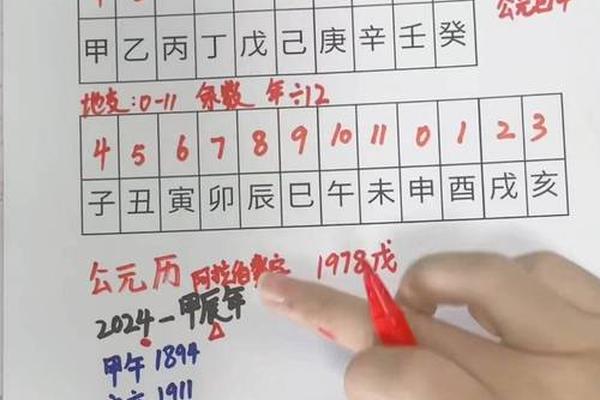 甲乙丙丁戊己庚辛壬癸
地支:0-11 余数 年÷12
4 5 6 7 8 9 10 11 0 1 2 3
子丑寅卯辰巳午未申酉戌亥
公元历 阿拉伯数字 1978戊
2024-甲辰年
甲午 1894
1911